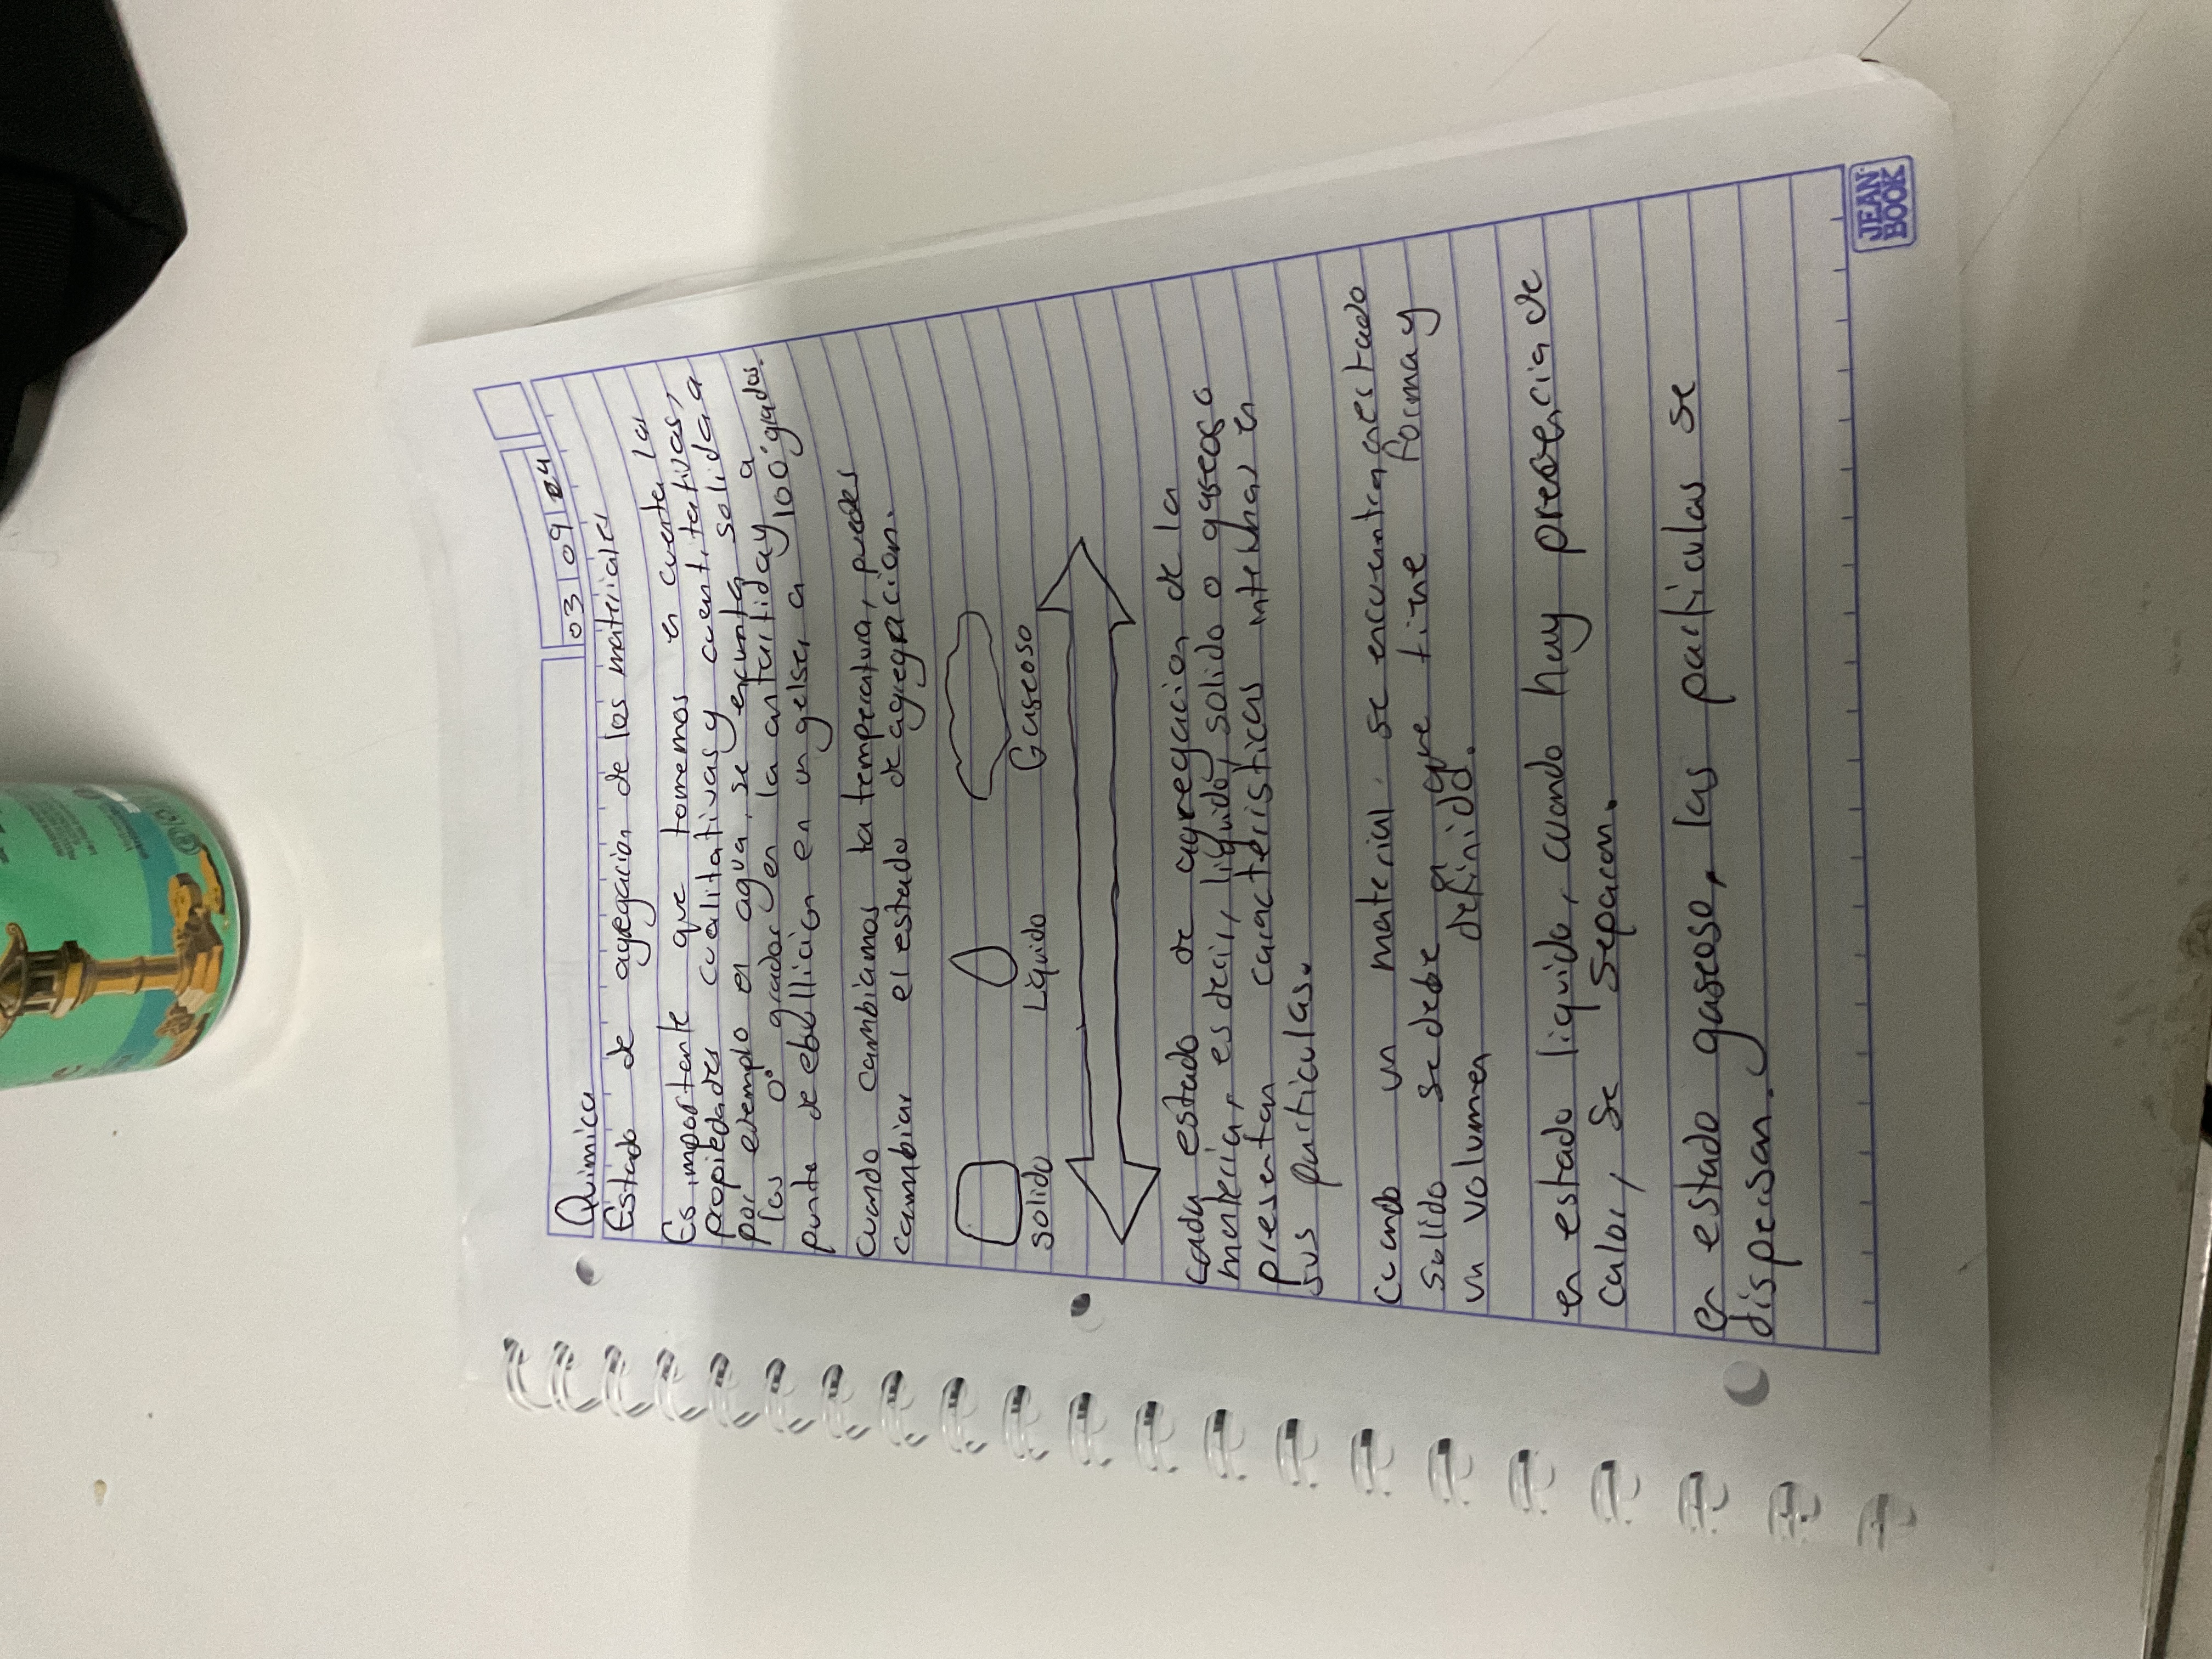 03 09 24
Quimica
Estado de agregacion de los materiales
Es importante que tomemos en cuenta las
propiedades cualitativas y cuantitativas,
por ejemplo el agua, se encunta solida a
los 0° grados en la antartida y a
punto de ebullicion en un geiser a 100° grados.
cuando cambiamos la temperatura, puedes
cambiar el estado de agregacion.
solido Liquido Gaseoso
cada estado de agregacion de la
materia, es decir, liquido, solido o gaseoso
presentan caracteristicas internas en
sus particulas.
Cuando un material se encuentra en estado
solido se debe a que tiene forma y
un volumen definido.
en estado liquido, cuando hay presencia de
calor, se separan.
en estado gaseoso, las particulas se
dispersan.
JEAN
BOOK